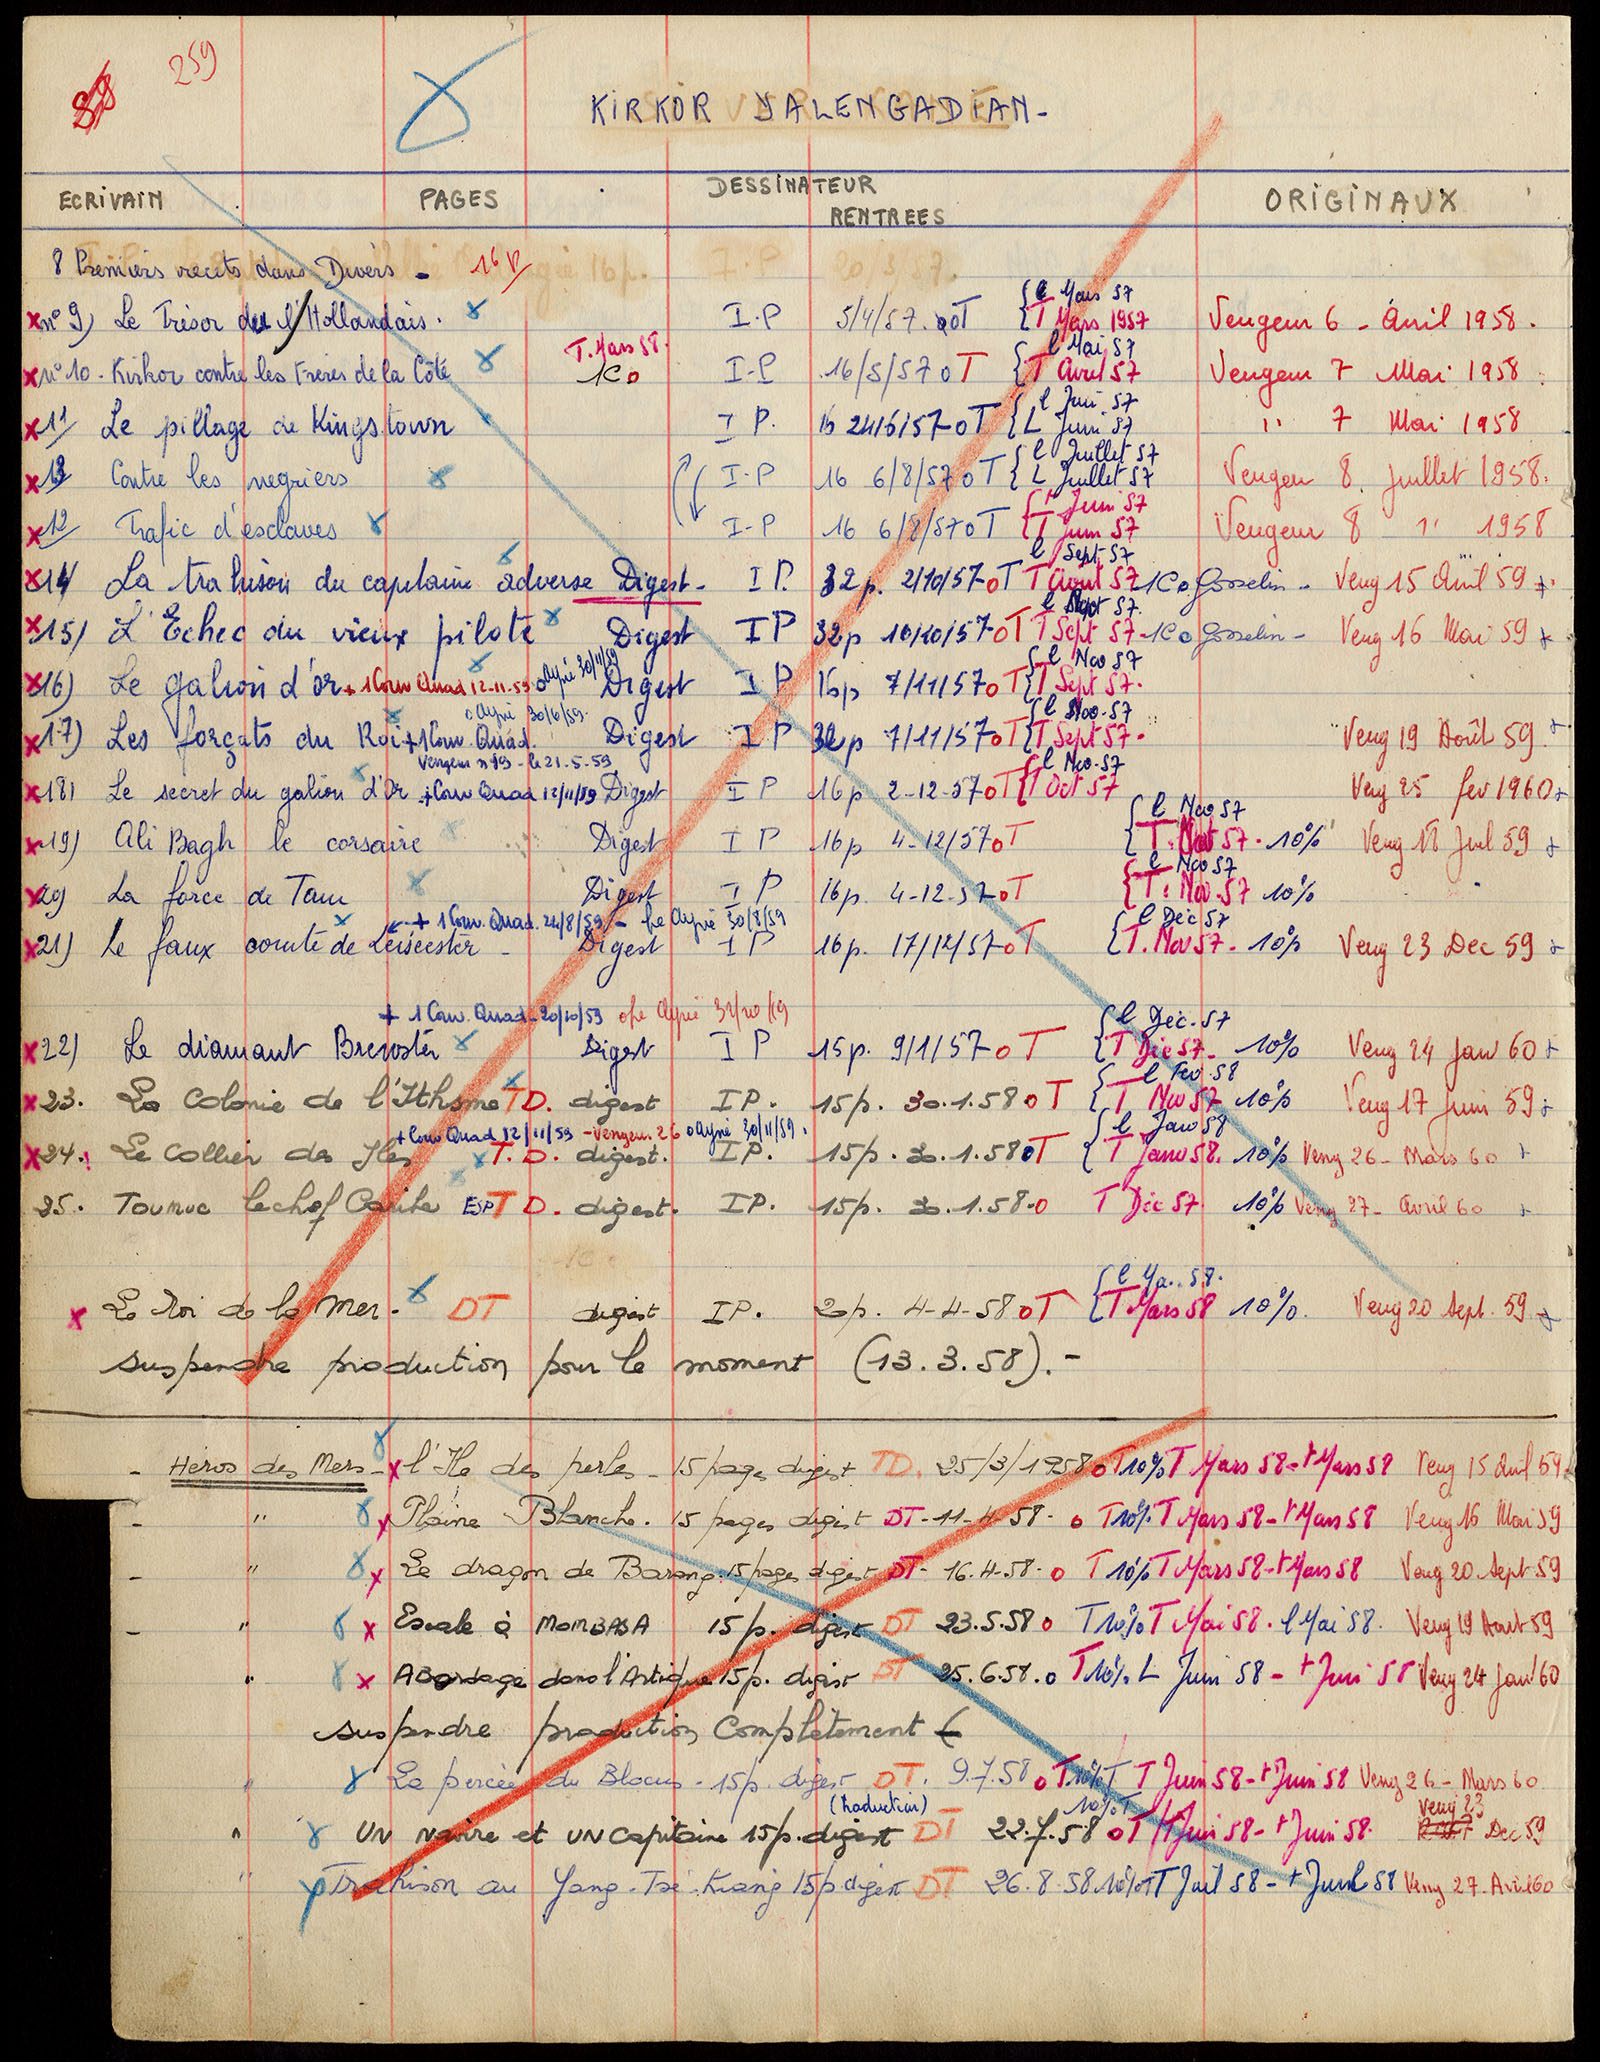 259
KIRKOR YALENGADIAN-
ECRIVAIN PAGES DESSINATEUR ORIGINAUX
RENTREES
8 Premiers récits dans Divers - 16 p
n° 9) Le Trésor du Hollandais. I.P 5/4/57. oT { l Mars 57 T Mars 1957 Vengeur 6 - Avril 1958.
n° 10. Kirkor contre les Frères de la Côte T. Mars 58. 1Co I-P 16/5/57 oT { l Mai 57 T Avril 57 Vengeur 7 Mai 1958
11 Le pillage de Kingstown I P. 16 24/6/57-oT { l Juin 57 L Juin 57 " 7 Mai 1958
13 Contre les negriers I-P 16 6/8/57 oT { l Juillet 57 L Juillet 57 Vengeur 8. Juillet 1958.
12 Trafic d'esclaves I-P 16 6/8/57 oT { t Juin 57 T Juin 57 Vengeur 8 " 1958
14 La trahison du capitaine adverse Digest- I P. 32 p. 2/10/57-oT l Sept 57 T Août 57 1Co Gosselin - Veng 15 Avril 59 +
15) L'Echec du vieux pilote Digest I P 32p 10/10/57-oT l Sept 57. T Sept 57-1Co Gosselin - Veng 16 Mai 59 +
16) Le galion d'or + 1 Couv Quad 12-11-59 o Ayné 30/11/59 Digest I P 16p 7/11/57 oT { l Nov 57 T Sept 57.
o Ayné 30/6/59.
17) Les forçats du Roi + 1 Couv. Quad. Digest I P 32p 7/11/57 oT { l Nov-57 T Sept 57- Veng 19 Août 59. +
Vengeur n° 19 - le 21.5.59
18) Le secret du galion d'Or + Couv Quad 12/11/59 Digest I P 16p 2-12-57 oT { l Nov-57 T Oct 57 Veng 25 fev 1960 +
19) Ali Bagh le corsaire Digest I P 16p 4-12/57 oT { l Nov 57 T. Oct 57 - 10% Veng 18 Juil 59 +
20) La force de Tam Digest I P 16p. 4-12-57-oT { l Nov 57 T. Nov-57 10%
+ 1 Couv. Quad. 24/8/59 - fe Ayné 30/8/59
21) Le faux comte de Leiscester - Digest I P 16p. 17/12/57-oT { l Déc 57 T. Nov 57 - 10% Veng 23 Dec 59 +
+ 1 Couv. Quad - 20/10/59
22) Le diamant Brewster Digest I P 15p. 9/1/57-oT { l Déc-57 T Déc 57- 10% Veng 24 Janv 60 +
23. La Colonie de l'Ithsme T D. digest IP. 15p. 30.1.58 oT { l Fev 58 T Nov 57 10% Veng 17 Juin 59 +
+ Couv Quad 12/11/59 - Vengeur 26 o Ayné 30/11/59.
24. Le Collier des Iles T. D. digest. IP. 15p. 30.1.58 oT { l Janv 58 T Janv 58. 10% Veng 26 - Mars 60 +
25. Toumuc le chef Caribe ESP T D. digest. IP. 15p. 30.1.58-o T Déc 57 10% Veng 27 - Avril 60 +
Le Roi de la Mer. DT digest IP. 20p. 4-4-58 oT { T Mars 58 10%. Veng 20 Sept. 59 +
suspendre production pour le moment (13.3.58).-
- Héros des Mers - l'Ile des perles - 15 pages digest TD. 25/3/1958 oT 10% T Mars 58 - t Mars 58 Veng 15 Avril 59
- " Plaine Blanche. 15 pages digest DT - 11-4-58- o T 10% T Mars 58 - t Mars 58 Veng 16 Mai 59
- " Le dragon de Barang. 15 pages digest DT - 16-4-58- o T 10% T Mars 58 - t Mars 58 Veng 20 Sept 59
- " Escale à MOMBASA 15 p. digest DT 23.5.58 o T 10% T Mai 58. l Mai 58. Veng 19 Aout 59
" Abordage dans l'Artique 15p. digest DT 25.6.58.o T 10% L Juin 58 - t Juin 58 Veng 24 Janv 60
suspendre production complètement
" La percée du Blocus - 15p. digest DT. 9.7.58 oT 10% T T Juin 58 - t Juin 58 Veng 26 - Mars 60
(traduction) 10% T Veng 23
" UN navire et UN capitaine 15p. digest DT 22.7.58 oT T Juin 58 - t Juin 58. Dec 59
" Trahison au Yang-Tsé-Kiang 15p digest DT 26.8.58 10% T T Juil 58 - t Juil 58 Veng 27. Avril 60